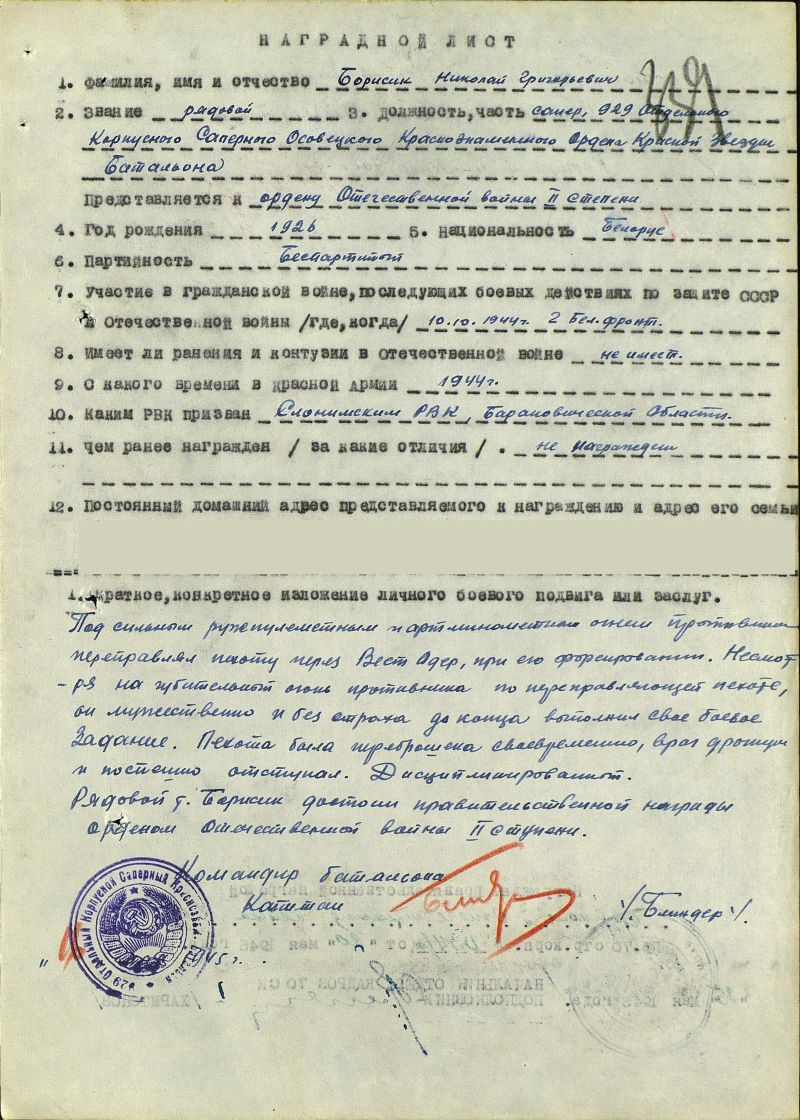 НАГРАДНОЙ ЛИСТ
1. Фамилия, имя и отчество Борисик Николай Григорьевич
2. Звание рядовой 3. Должность, часть сапер, 929 Отдельного
Корпусного Саперного Осовецкого Краснознаменного Ордена Красной Звезды
Батальона
Представляется к ордену Отечественной войны II степени
4. Год рождения 1926 5. Национальность Белорус
6. Партийность Беспартийный
7. Участие в гражданской войне, последующих боевых действиях по защите СССР
и Отечественной войны /где, когда/ 10.10.1944г. 2 Бел. фронт.
8. Имеет ли ранения и контузии в Отечественной войне не имеет.
9. С какого времени в Красной Армии 1944г.
10. Каким РВК призван Слонимским РВК, Барановической Области.
11. Чем ранее награжден / за какие отличия /. не награжден
12. Постоянный домашний адрес представляемого к награждению и адрес его семьи
1. Краткое, конкретное изложение личного боевого подвига или заслуг.
Под сильным ружпулеметным и артминометным огнем противника
переправлял пехоту через Вест Одер, при его форсировании. Несмот
-ря на губительный огонь противника по переправляющей пехоте,
он мужественно и без страха до конца выполнил свое боевое
Задание. Пехота была переброшена своевременно, враг дрогнул
и поспешно отступал. Дисциплинированный.
Рядовой т. Борисик достоин правительственной награды
орденом Отечественной войны II ступени.
Командир батальона
Капитан /Блиндер/.
1945г.
929 Отдельный Корпусной Саперный